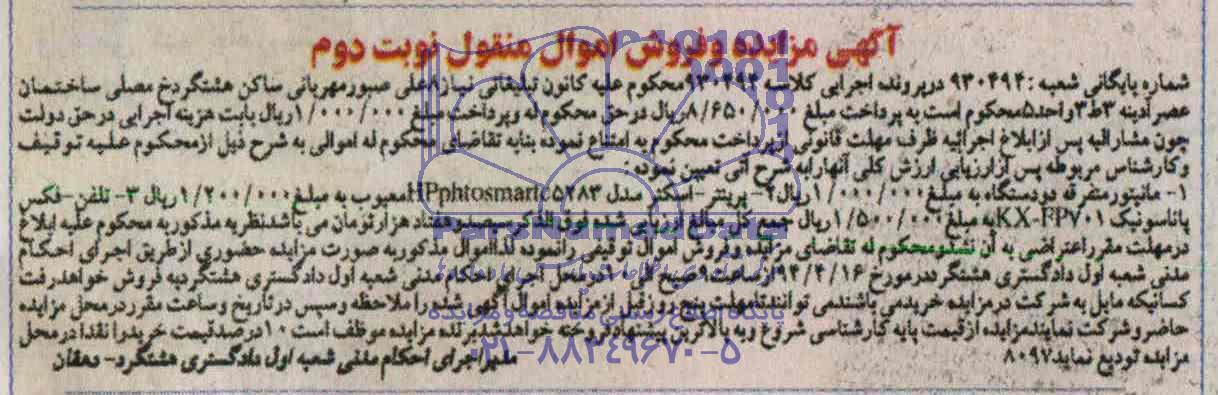 آگهی مزایده وفروش اموال منقول نوبت دوم
شماره بایگانی شعبه :۹۳۰۴۹۴ درپرونده اجرایی کلاسه ۹۳۰۴۹۴ محکوم علیه کانون تبلیغاتی نیاز۸علی صبورمهربانی ساکن هشتگردخ مصلی ساختمان
عصرآدینه ۳ط۳واحد۵محکوم است به پرداخت مبلغ ۸/۶۵۰/۰۰۰ریال درحق محکوم له وپرداخت مبلغ ۱/۰۰۰/۰۰۰ریال بابت هزینه اجرایی درحق دولت
چون مشارالیه پس ازابلاغ اجرائیه ظرف مهلت قانونی ازپرداخت محکوم به امتناع نموده بنابه تقاضای محکوم له اموالی به شرح ذیل ازمحکوم علیه توقیف
وکارشناس مربوطه پس ازارزیابی ارزش کلی آنهارابه شرح آتی تعیین نموده :
۱- مانیتورمتفرقه دودستگاه به مبلغ ۱/۰۰۰/۰۰۰ریال۲- پرینتر-اسکنر مدل HPphtosmartc۵۲۸۳معیوب به مبلغ۱/۲۰۰/۰۰۰ریال ۳- تلفن-فکس
پاناسونیک KX-FP۷۰۱به مبلغ ۱/۵۰۰/۰۰۰ریال جمع کل مبالغ ارزیابی شده فوق الذکر سیصدوهفتاد هزارتومان می باشدنظریه مذکوربه محکوم علیه ابلاغ
درمهلت مقرراعتراضی به آن نشدومحکوم له تقاضای مزایده وفروش اموال توقیفی رانموده لذااموال مذکوربه صورت مزایده حضوری ازطریق اجرای احکام
مدنی شعبه اول دادگستری هشتگرددرمورخ ۹۴/۴/۱۶ازساعت۹صبح الی ۱۰درمحل اجرای احکام مدنی شعبه اول دادگستری هشتگردبه فروش خواهدرفت
کسانیکه مایل به شرکت درمزایده خریدمی باشندمی توانندتامهلت پنج روزقبل ازمزایده اموال آگهی شده را ملاحظه وسپس درتاریخ وساعت مقرردرمحل مزایده
حاضروشرکت نمایندمزایده ازقیمت پایه کارشناسی شروع وبه بالاترین پیشنهادفروخته خواهدشدبرنده مزایده موظف است ۱۰درصدقیمت خریدرا نقدادرمحل
مزایده تودیع نماید۸۰۹۷
مدیراجرای احکام مدنی شعبه اول دادگستری هشتگرد- دهقان
پایگاه اطلاع رسانی مناقصه و مزایده
۰۲۱-۸۸۳۴۹۶۷۰-۵